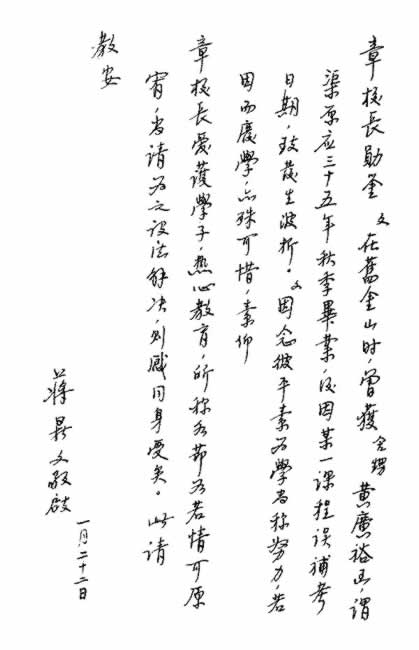 章校長勛鉴 文在舊金山时,曾獲舍甥黄廣裕函,謂
渠原应三十五年秋季畢業,后因某一課程误補考
日期,致发生波折。文因念彼平素为學尚称努力,若
因而廢學,亦殊可惜,素仰
章校長愛護學子,热心教育,所称各節,如若情可原
宥,尚請为之设法解决,则感同身受矣。此请
教安
蔣 文敬啟
一月二十二日